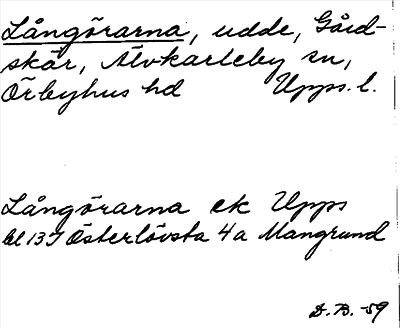 Långörarna, udde, Gård-
skär, Älvkarleby sn,
Örbyhus hd Upps. l.
Långörarna ek Upps
bl 13 I Österlövsta 4a Mangrund
D.B. -59